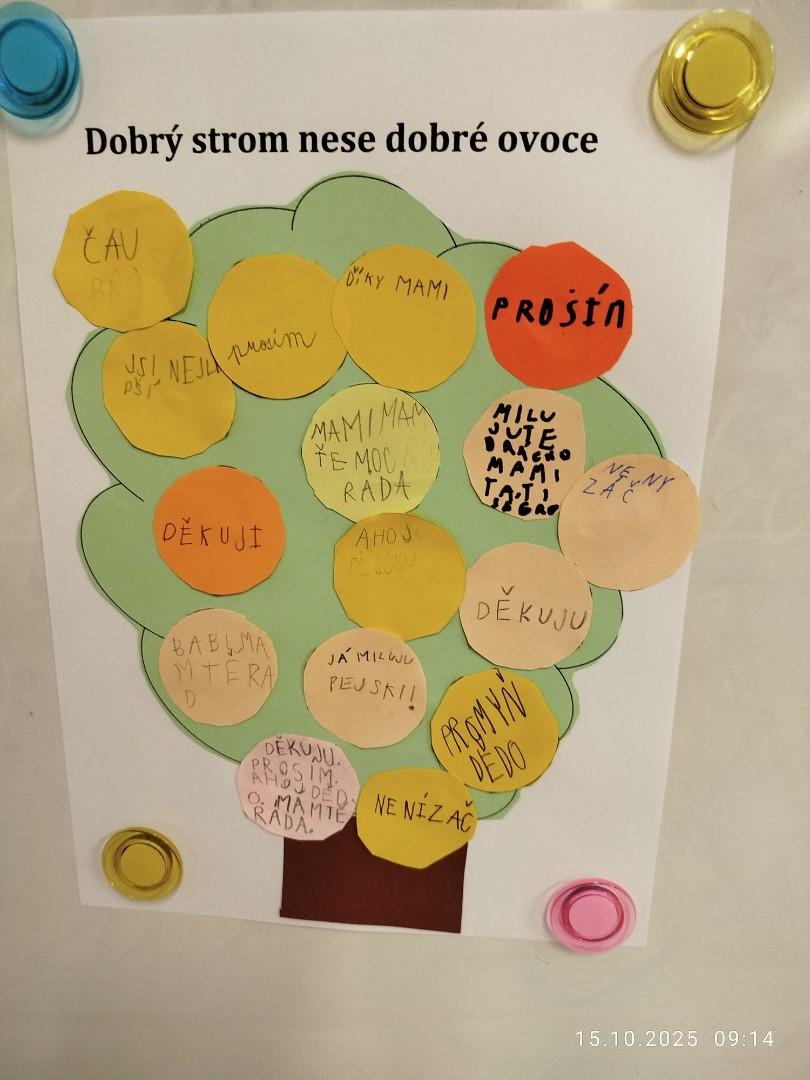 Dobrý strom nese dobré ovoce
ČAU
BRO
prosím
DÍKY MAMI
PROSÍM
JSI NEJLE
PŠÍ
MAMI MÁM
TĚ MOC
RÁDA
MILU
JU TE
DRAHO
MAMI
TATI
NE NY
ZAČ
DĚKUJI
AHOJ
PEJSKU
DĚKUJU
BABI, MA
M TE RA
D
JÁ MILUJU
PEJSKI!
PROMYŇ
DĚDO
DĚKUJU.
PROSIM.
AHOJ DĚD
O. MÁM TĚ
RÁDA.
NENÍ ZAČ
15.10.2025 09:14